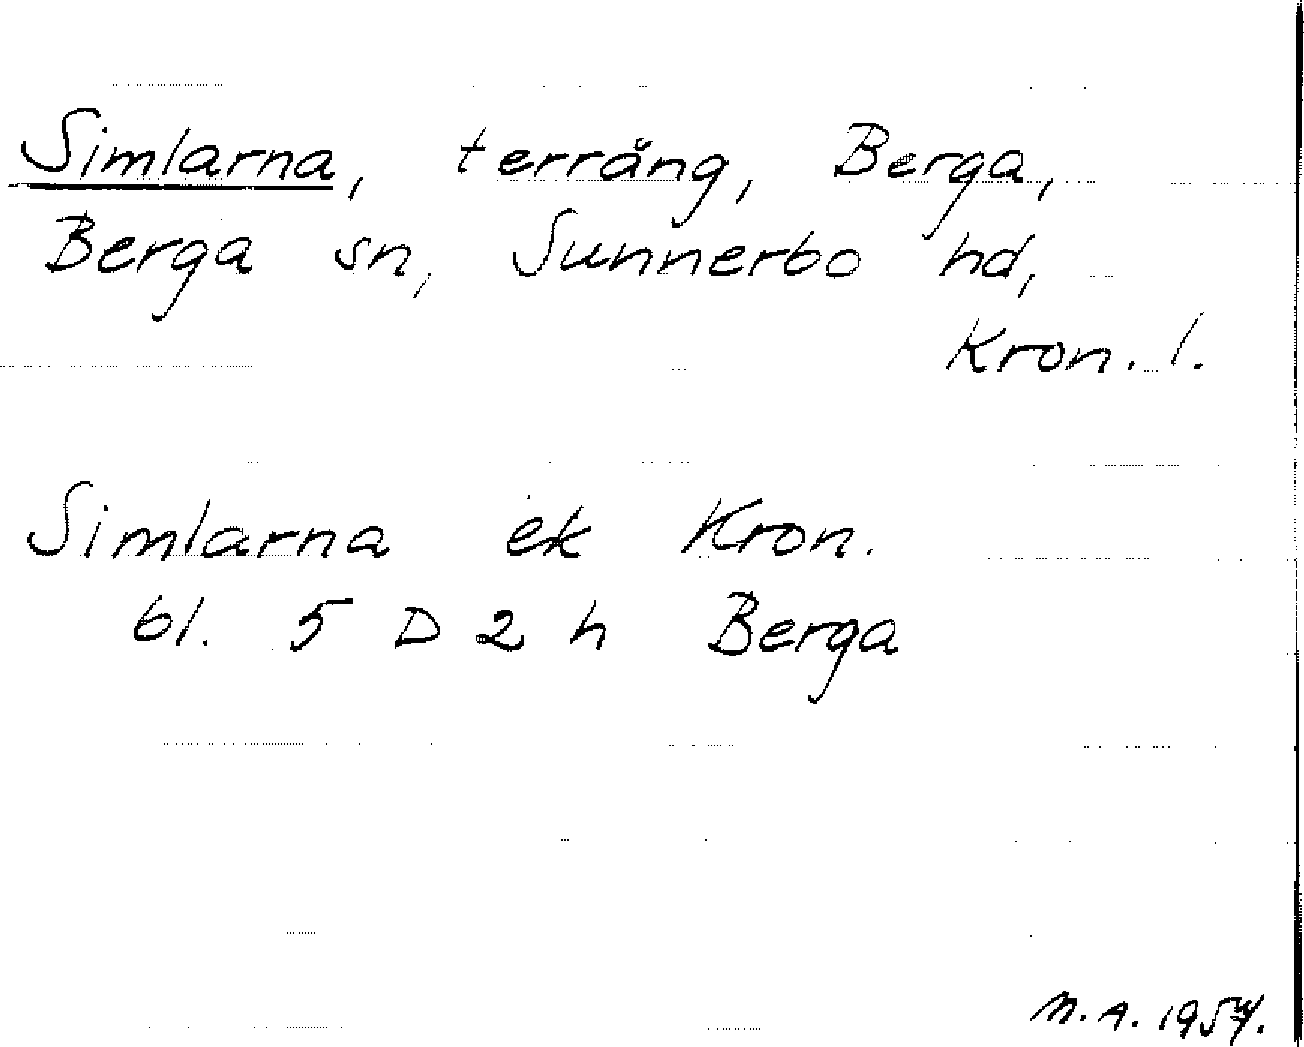 Simlarna, terräng, Berga,
Berga sn, Sunnerbo hd,
Kron. l.
Simlarna ek Kron.
bl. 5 D 2 h Berga
M.A. 1957.